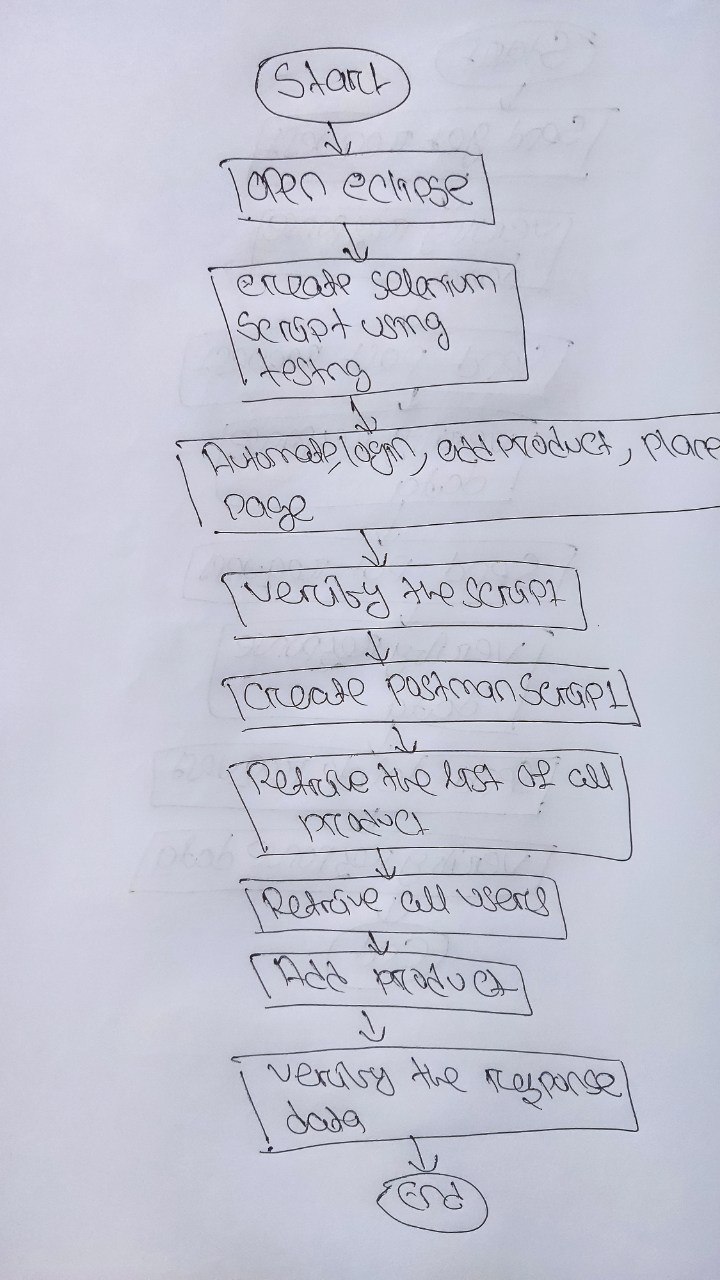 Start
open eclipse
create selenium
Script using
testng
Automate, login, add product, place
page
Verify the script
Create postman Script
Retrive the list of all
product
Retrive all users
Add product
verify the response
data
End